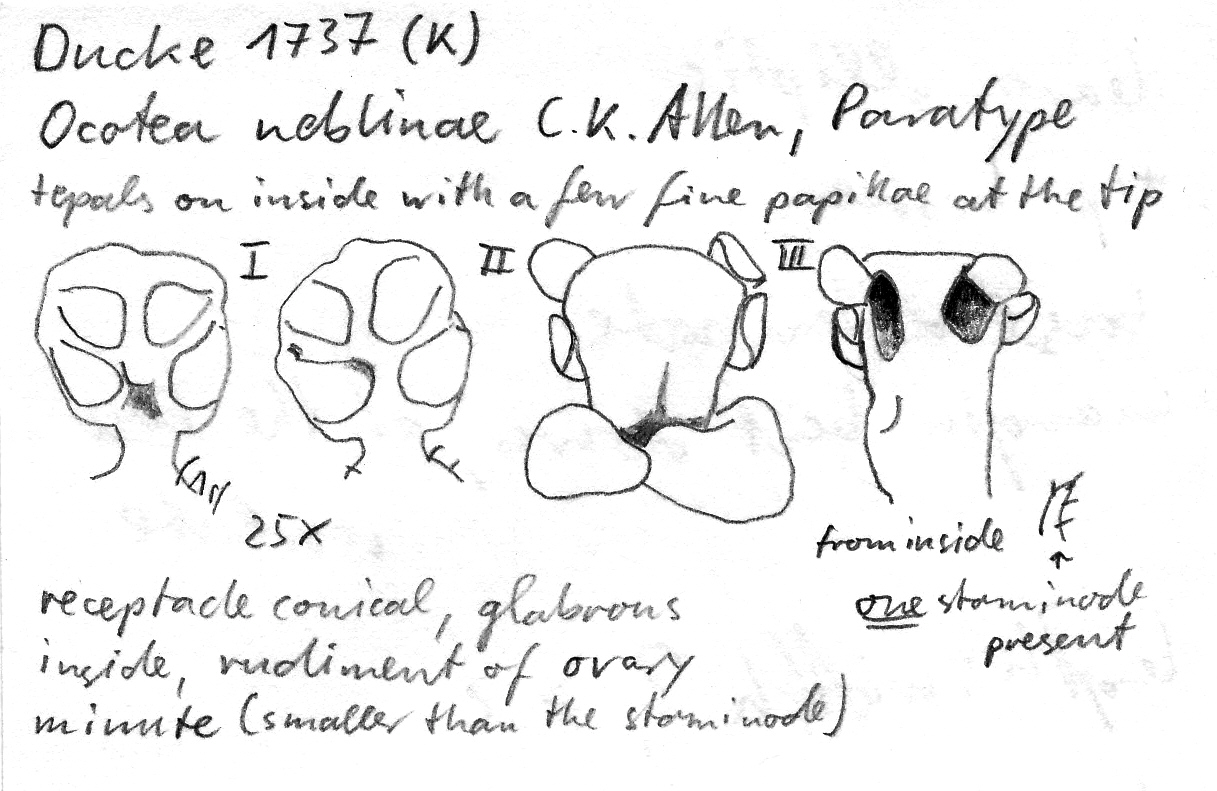 Ducke 1737 (K)
Ocotea neblinae C.K. Allen, Paratype
tepals on inside with a few fine papillae at the tip
I II III
25x
from inside
one staminode
present
receptacle conical, glabrous
inside, rudiment of ovary
minute (smaller than the staminode)